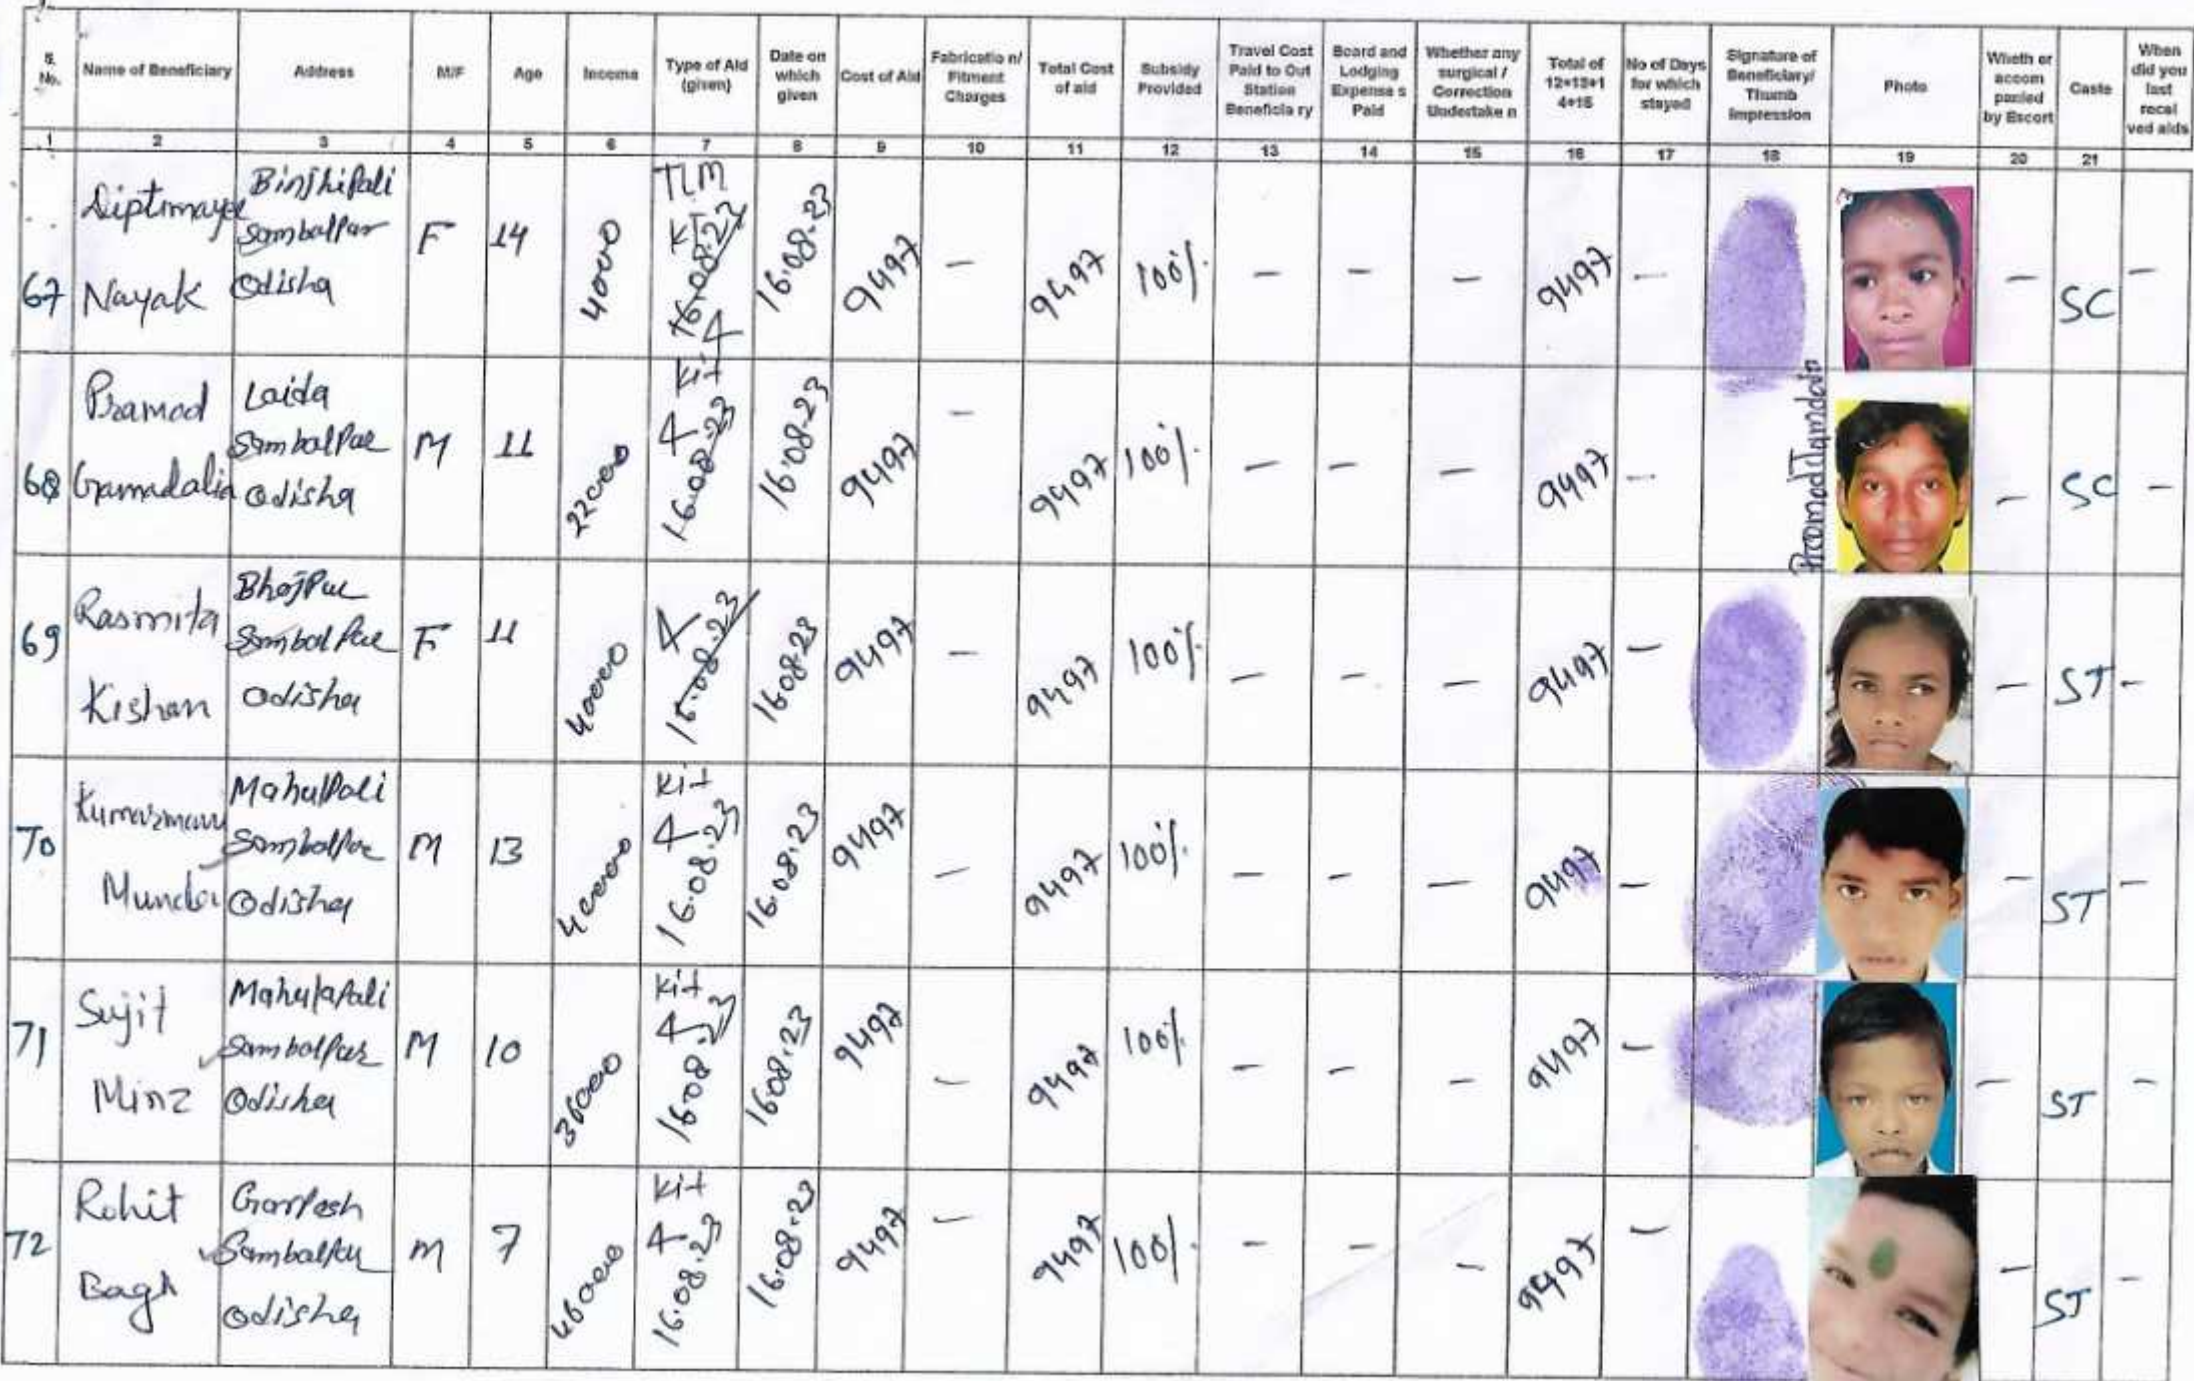 S. No. Name of Beneficiary Address M/F Age Income Type of Aid (given) Date on which given Cost of Aid Fabricatio n/ Fitment Charges Total Cost of aid Subsidy Provided Travel Cost Paid to Out Station Beneficia ry Board and Lodging Expense s Paid Whether any surgical / Correction Undertake n Total of 12+13+1 4+15 No of Days for which stayed Signature of Beneficiary/ Thumb Impression Photo Wheth er accom panied by Escort Caste When did you last recei ved aids
1 2 3 4 5 6 7 8 9 10 11 12 13 14 15 16 17 18 19 20 21
67 Nayak Sambalpur Odisha F 14 4000 TLM 16.08.23 9497 – 9497 100% – – – 9497 – – SC –
68 Pramod Gamadalia Laida Sambalpur Odisha M 11 22000 Kit 4 16.08.23 16.08.23 9497 – 9497 100% – – – 9497 – – SC –
69 Rasmita Kishan Bhojpur Sambalpur Odisha F 11 40000 4 16.08.23 9497 – 9497 100% – – – 9497 – – ST –
70 Munda Mahulpali Sambalpur Odisha M 13 40000 Kit 4 16.08.23 16.08.23 9497 – 9497 100% – – – 9497 – – ST –
71 Sujit Minz Mahulapali Sambalpur Odisha M 10 36000 Kit 4 16.08.23 16.08.23 9497 – 9497 100% – – – 9497 – – ST –
72 Rohit Bagh Sambalpur Odisha M 7 46000 Kit 4 16.08.23 16.08.23 9497 – 9497 100% – – – 9497 – – ST –